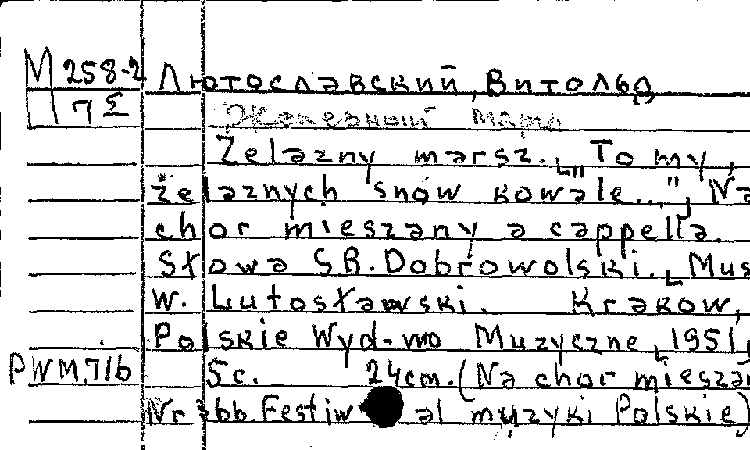 М 258-2 Лютославский, Витольд
7 Σ Железный марш
Żelazny marsz. „To my,
żelaznych snów kowale..." Na
chor mieszany a cappella.
Słowa S.R. Dobrowolski. Mus
W. Lutosławski. Krakow,
Polskie Wyd-wo Muzyczne, 1951,
PWM.716 5c. 24cm. (Na chor miesza
Nr Festiwal muzyki Polskie)